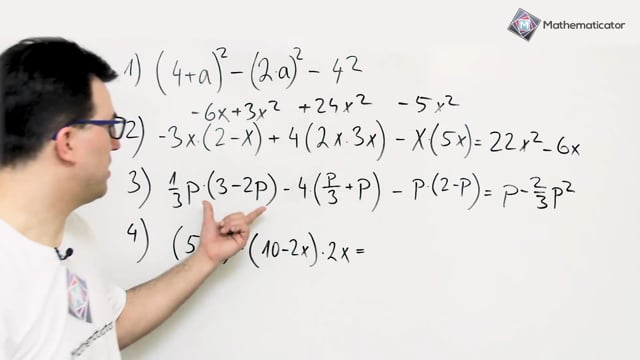 Mathematicator
1) (4+a)² - (2·a)² - 4²
-6x+3x² +24x² -5x²
2) -3x·(2-x)+4(2x·3x) - x(5x)= 22x²-6x
3) 1/3 p·(3-2p) - 4·(p/3+p) - p·(2-p)= p-2/3p²
4) (5 (10-2x)·2x=